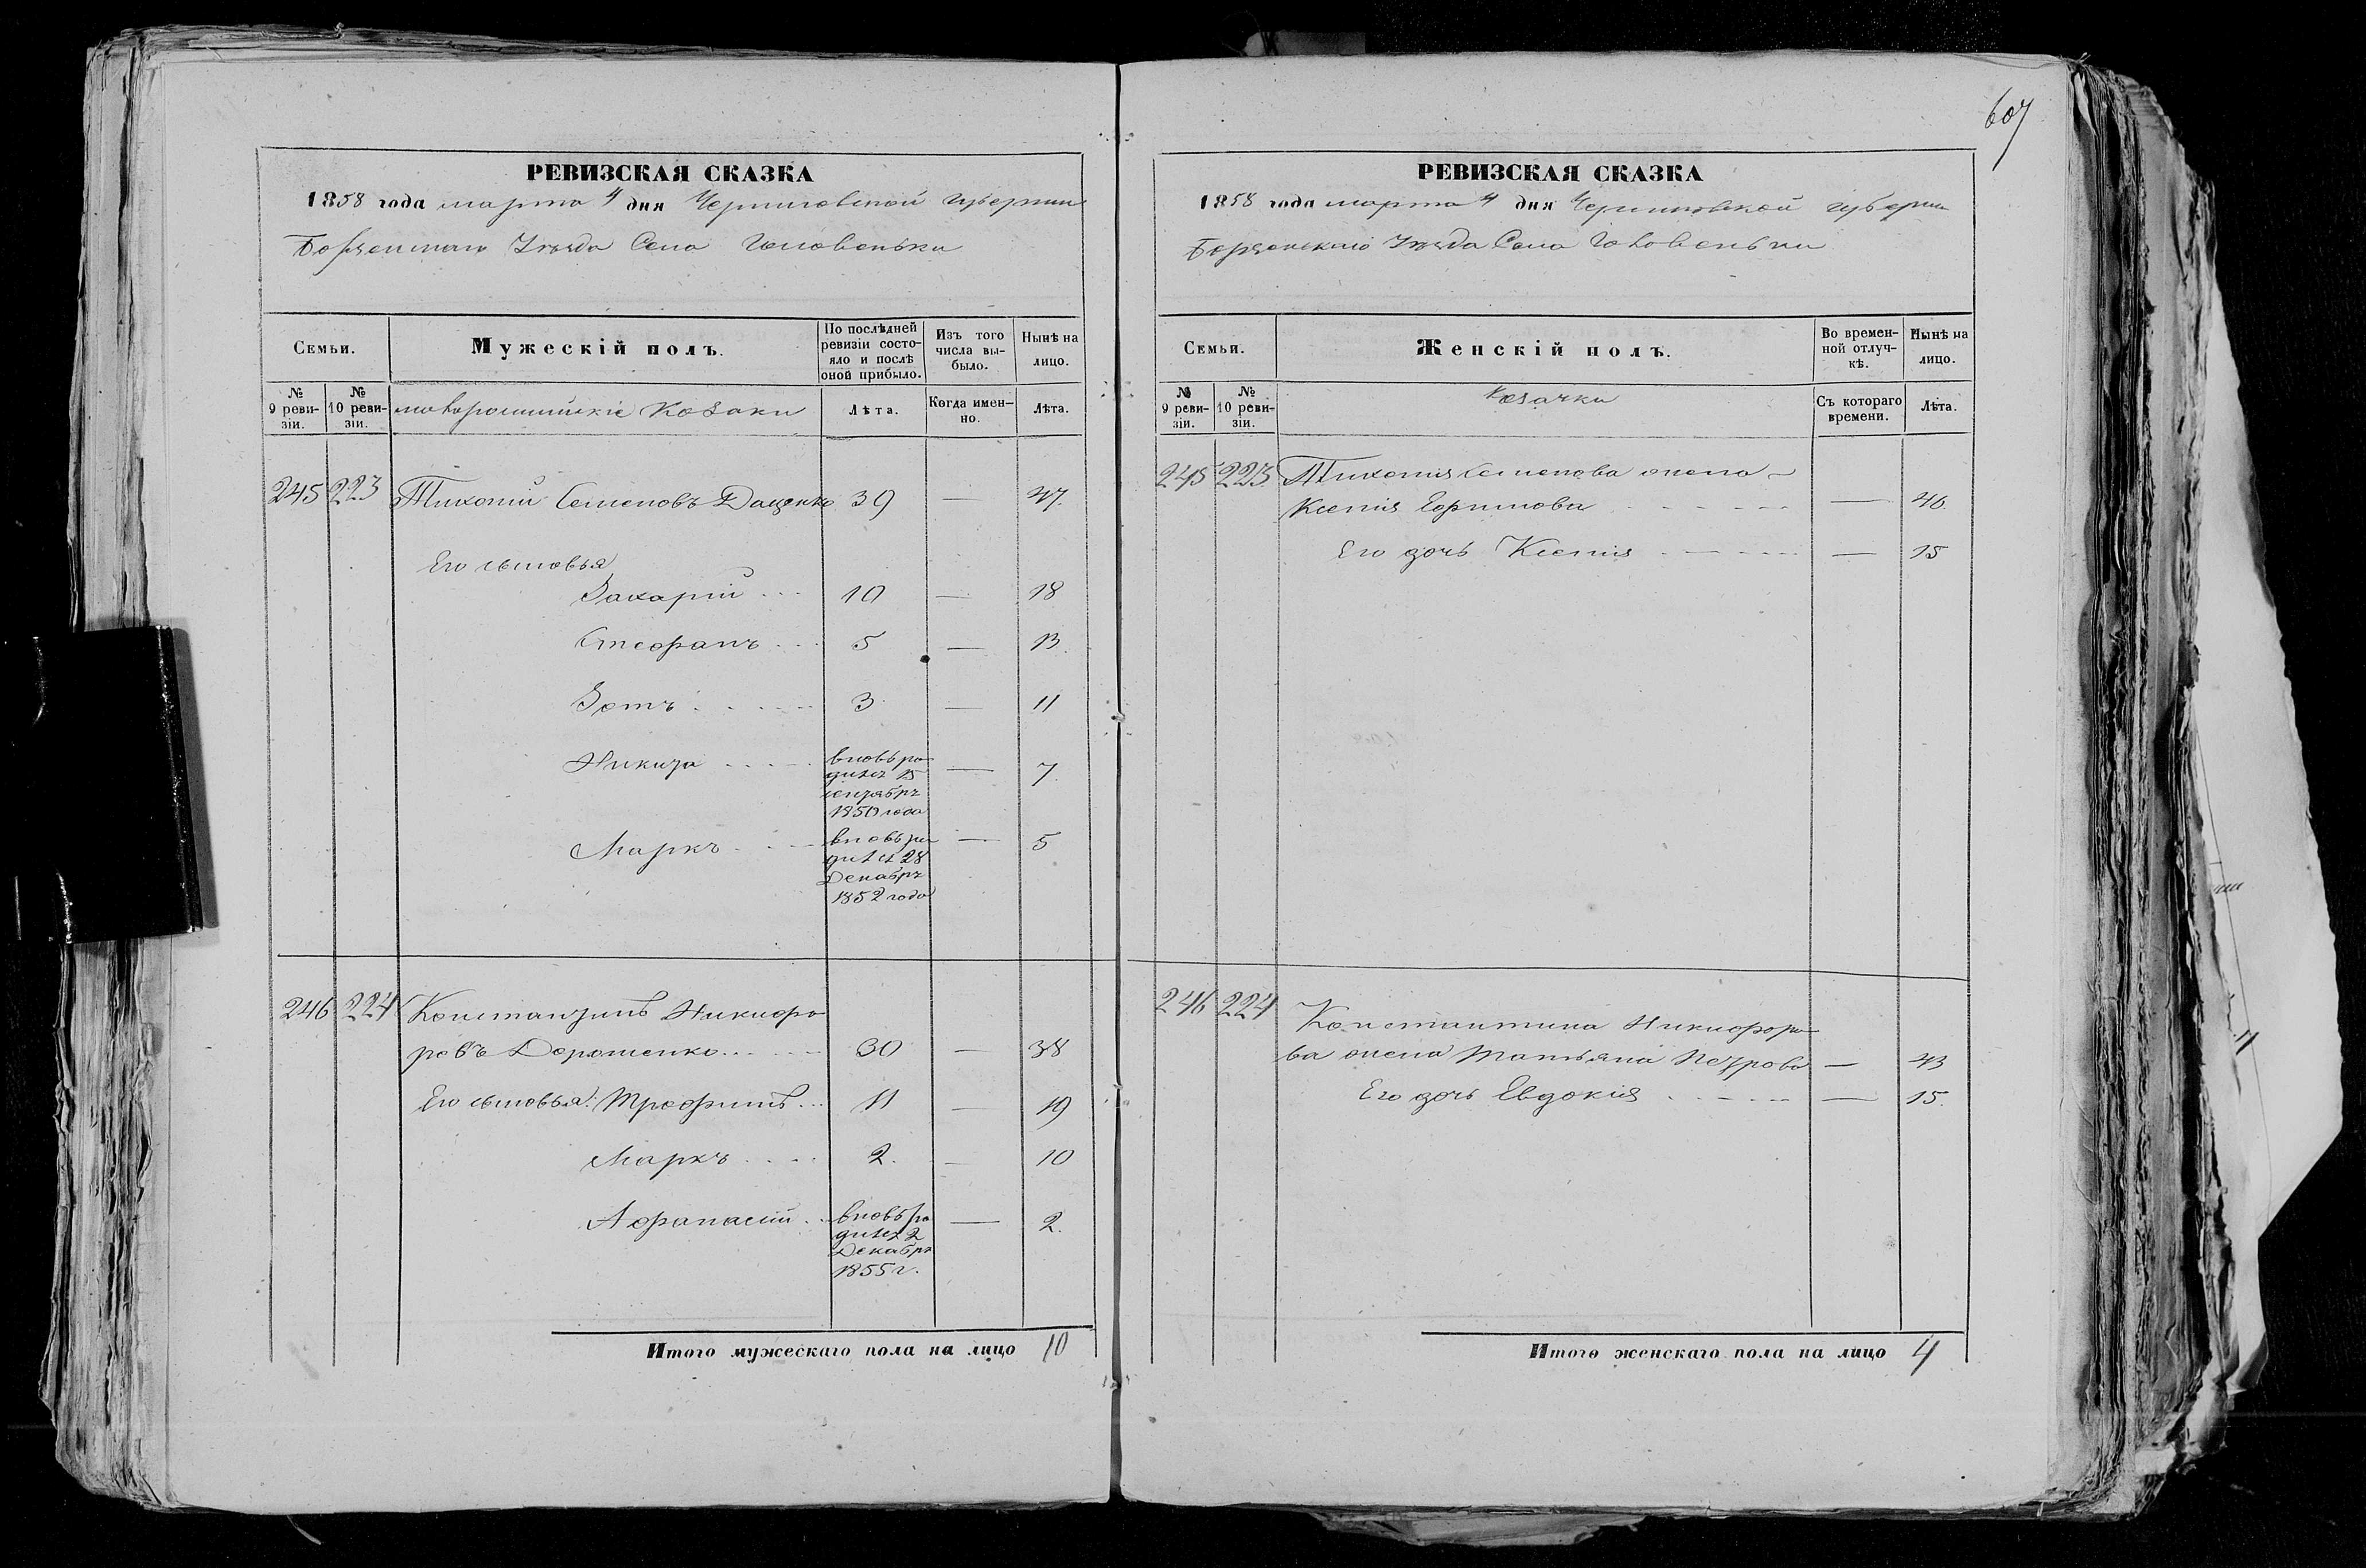 607
РЕВИЗСКАЯ СКАЗКА
1858 года марта 4 дня Черниговской губернии
Борзенскаго Уезда Села Головеньки
Семьи.
Мужескій полъ.
По послѣдней ревизіи состояло и послѣ оной прибыло.
Изъ того числа выбыло.
Нынѣ на лицо.
№ 9 ревизіи.
№ 10 ревизіи.
малороссийскіе Козаки
Лѣта.
Когда именно.
Лѣта.
245 223 Тихоній Семеновъ Даценко 39 — 47.
Его сыновья
Захарій 10 — 18
Стефанъ 5 — 13.
Зотъ 3 — 11
Никита вновь ро — 7.
дился 15
сентября
1850 года
Маркъ вновь ро — 5
дился 28
Декабря
1852 года
246 224 Константинъ Никифо
ровъ Дорошенко 30 — 38
Его сыновья: Трофимъ 11 — 19
Маркъ 2. — 10
Афанасій вновь ро — 2.
дился 2
Декабря
1855 г.
Итого мужескаго пола на лицо 10
РЕВИЗСКАЯ СКАЗКА
1858 года марта 4 дня Черниговской губернии
Борзенскаго Уезда Села Головеньки
Семьи.
Женскій полъ.
Во временной отлучкѣ.
Нынѣ на лицо.
№ 9 ревизіи.
№ 10 ревизіи.
Козачки
Съ котораго времени.
Лѣта.
245 223 Тихонія Семенова жена
Ксенія — 46.
Его дочь Ксенія — 15
246 224 Константина Никифоро
ва жена Татьяна Петрова — 43
Его дочь Евдокія — 15.
Итого женскаго пола на лицо 4